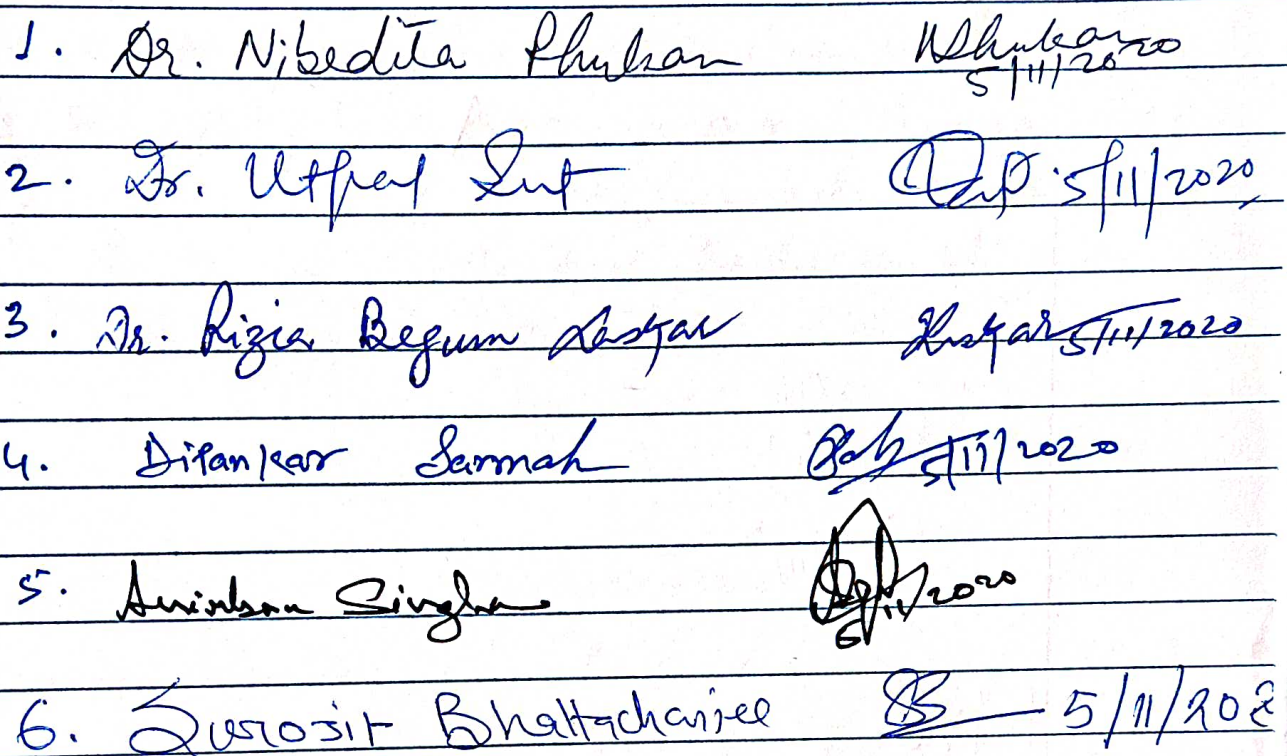 1. Dr. Nibedita Phukan NPhukan 5/11/2020
2. Dr. Utpal Sut 5/11/2020
3. Dr. Rizia Begum Laskar Laskar 5/11/2020
4. Dipankar Sarmah 5/11/2020
5. Anirban Singha 2020
6. Surojit Bhattacharjee SB 5/11/202